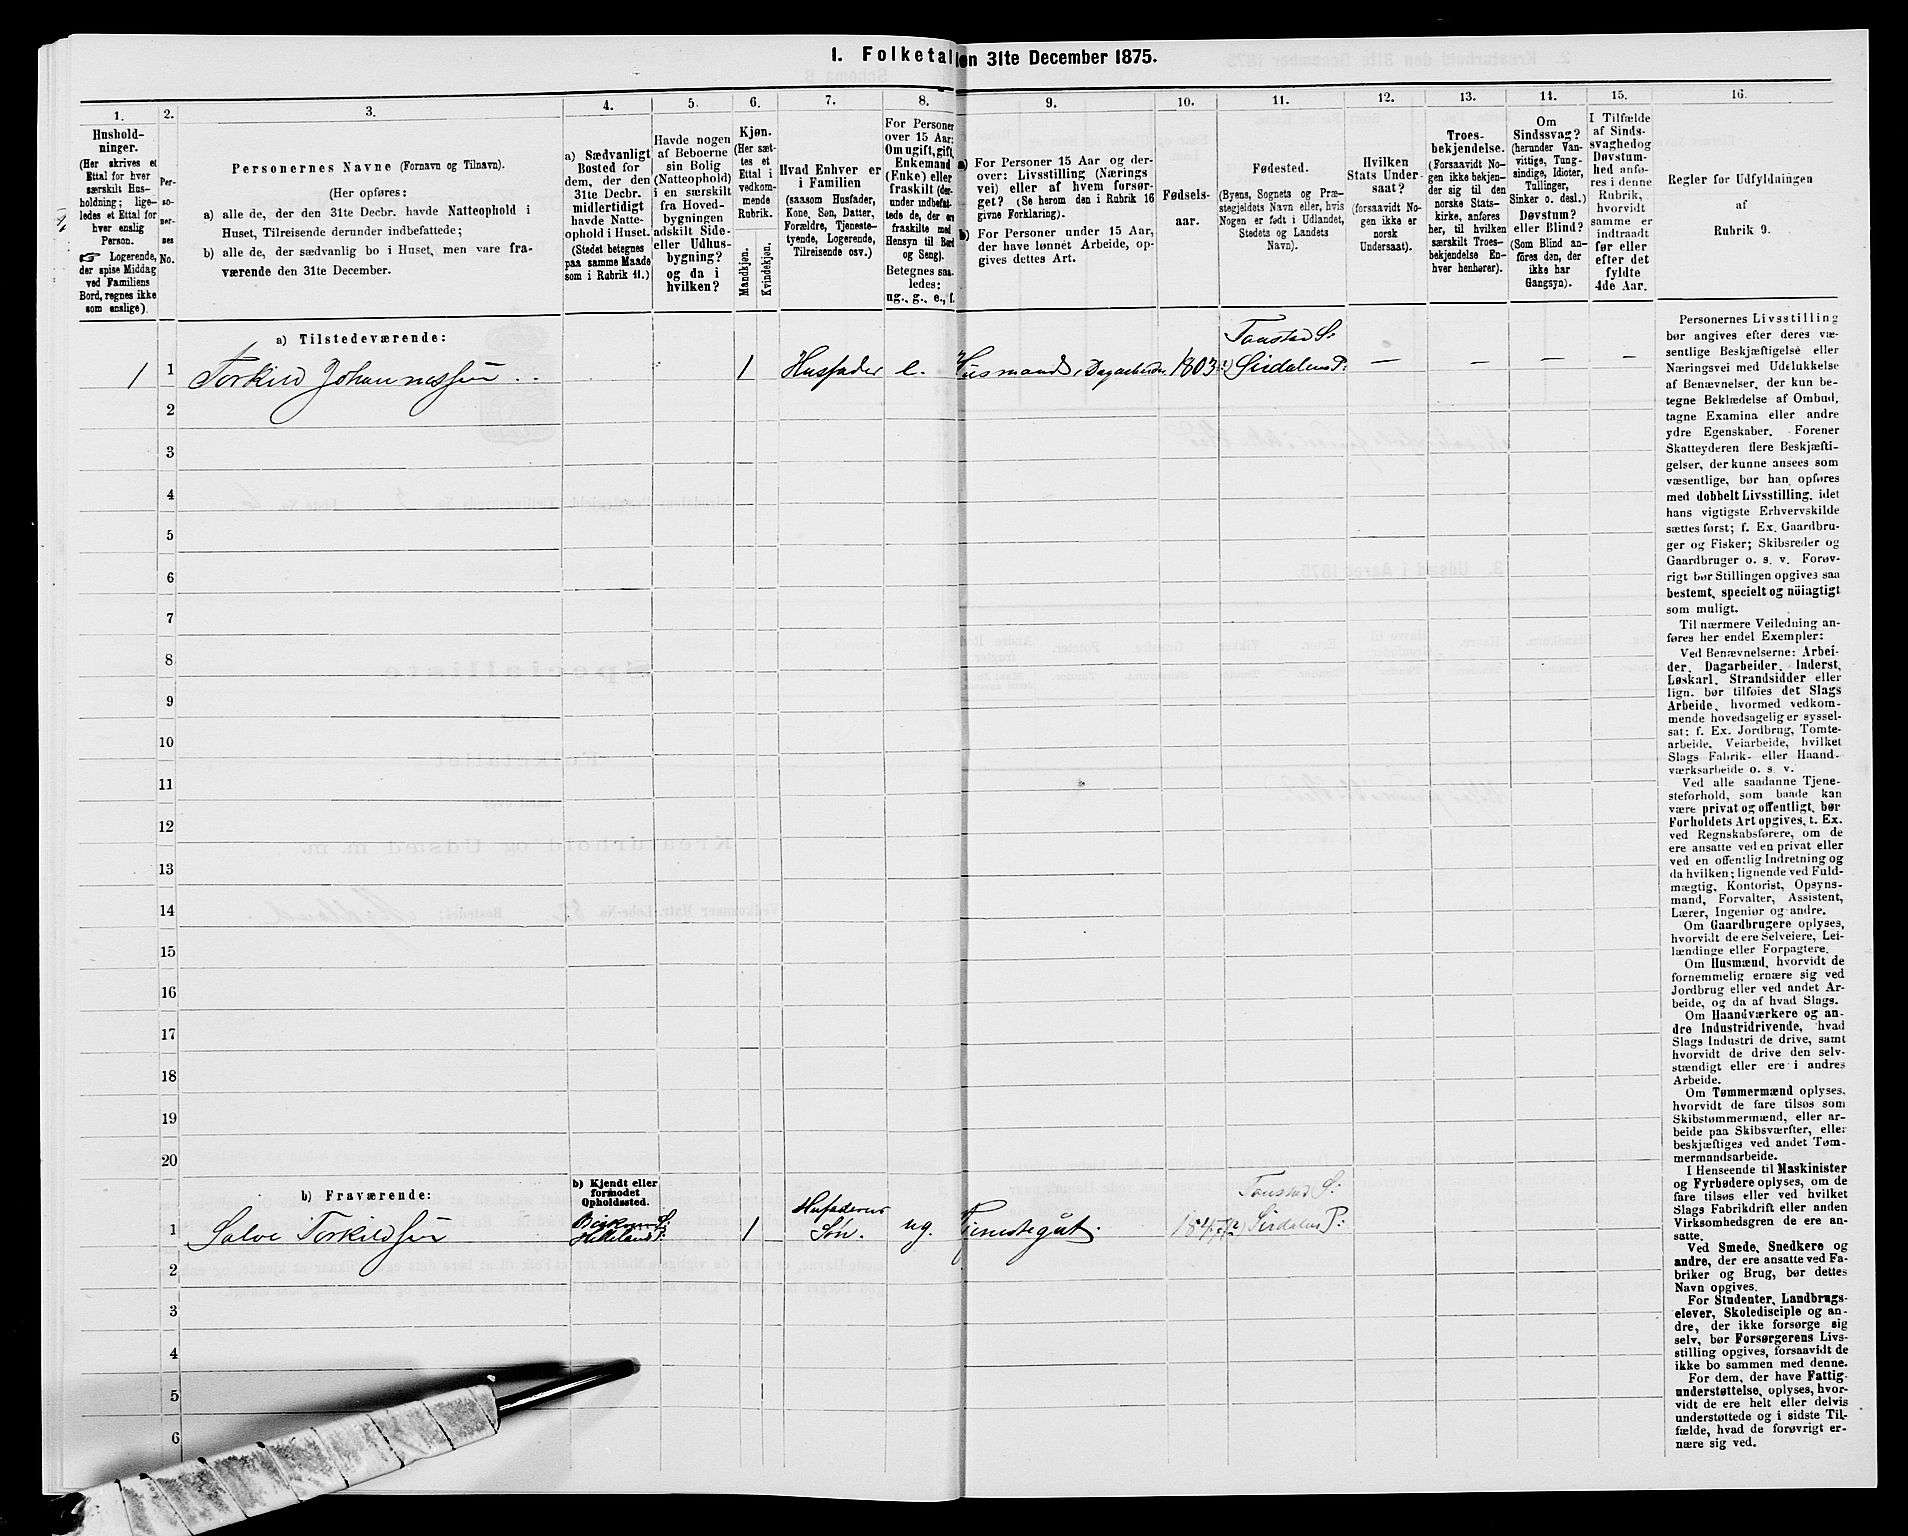 1. Folketal den 31te December 1875.
1.
Hushold-
ninger.
(Her skrives et
Ettal for hver
særskilt Hus-
holdning; lige-
ledes et Ettal for
hver enslig
Person.
☞ Logerende,
der spise Middag
ved Familiens
Bord, regnes ikke
som enslige).
2.
Per-
so-
ner-
nes
No.
3.
Personernes Navne (Fornavn og Tilnavn).
(Her opføres:
a) alle de, der den 31te Decbr. havde Natteophold i
Huset, Tilreisende derunder indbefattede;
b) alle de, der sædvanlig bo i Huset, men vare fra-
værende den 31te December.
4.
a) Sædvanligt
Bosted for
dem, der den
31te Decbr.
midlertidigt
havde Natte-
ophold i Huset.
(Stedet betegnes
paa samme Maade
som i Rubrik 11.)
5.
Havde nogen
af Beboerne
sin Bolig
(Natteophold)
i en særskilt
fra Hoved-
bygningen
adskilt Side-
eller Udhus-
bygning?
og da i
hvilken?
6.
Kjøn.
(Her sæt-
tes et
Ettal i
vedkom-
mende
Rubrik.
Mandkjøn.
Kvindekjøn.
7.
Hvad Enhver er
i Familien
(saasom Husfader,
Kone, Søn, Datter,
Forældre, Tjeneste-
tyende, Logerende,
Tilreisende osv.)
8.
For Personer
over 15 Aar:
Om ugift, gift,
Enkemand
(Enke) eller
fraskilt (der-
under indbefat-
tede de, der ere
fraskilte med
Hensyn til Bord
og Seng).
Betegnes saa-
ledes:
ug., g., e., f.
9.
a) For Personer 15 Aar og der-
over: Livsstilling (Nærings-
vei) eller af hvem forsør-
get? (Se herom den i Rubrik 16
givne Forklaring).
b) For Personer under 15 Aar,
der have lønnet Arbeide, op-
gives dettes Art.
10.
Fødsels-
aar.
11.
Fødested.
(Byens, Sognets og Præ-
stegjeldets Navn eller, hvis
Nogen er født i Udlandet,
Stedets og Landets
Navn).
12.
Hvilken
Stats Under-
saat?
(forsaavidt No-
gen ikke er
norsk
Undersaat).
13.
Troes-
bekjendelse.
(Forsaavidt No-
gen ikke bekjen-
der sig til den
norske Stats-
kirke, anføres
her, til hvilken
særskilt Troes-
bekjendelse En-
hver henhører).
14.
Om
Sindssvag?
(herunder Van-
vittige, Tung-
sindige, Idioter,
Tullinger,
Sinker o. desl.)
Døvstum?
eller Blind?
(Som Blind an-
føres den, der
ikke har
Gangsyn).
15.
I Tilfælde
af Sinds-
svaghed og
Døvstum-
hed anfø-
res i denne
Rubrik,
hvorvidt
samme er
indtraadt
før eller
efter det
fyldte
4de Aar.
16.
Regler for Udfyldningen
af
Rubrik 9.
a) Tilstedeværende:
Tonstad S:
1 1 Torkild Johannessen 1 Husfader e. Husmand, Dagarbeider 1803 Sirdalens P: — — — —
2
3
4
5
6
7
8
9
10
11
12
13
14
15
16
17
18
19
20
b) Fraværende:
b) Kjendt eller
formodet
Opholdssted.
Tonstad S:
1 Salve Torkildsen 1 Husfaderens
Søn. ug. Tjenestegut. Sirdalens P:
2
3
4
5
6
Personernes Livsstilling
bør angives efter deres væ-
sentlige Beskjæftigelse eller
Næringsvei med Udelukkelse
af Benævnelser, der kun be-
tegne Beklædelse af Ombud,
tagne Examina eller andre
ydre Egenskaber. Forener
Skatteyderen flere Beskjæfti-
gelser, der kunne ansees som
væsentlige, bør han opføres
med dobbelt Livsstilling, idet
hans vigtigste Erhvervskilde
sættes først; f. Ex. Gaardbru-
ger og Fisker; Skibsreder og
Gaardbruger o. s. v. Forøv-
rigt bør Stillingen opgives saa
bestemt, specielt og nöiagtigt
som muligt.
Til nærmere Veiledning an-
føres her endel Exempler:
Ved Benævnelserne: Arbei-
der, Dagarbeider, Inderst,
Løskarl, Strandsidder eller
lign. bør tilføies det Slags
Arbeide, hvormed vedkom-
mende hovedsagelig er syssel-
sat; f. Ex. Jordbrug, Tomte-
arbeide, Veiarbeide, hvilket
Slags Fabrik- eller Haand-
værksarbeide o. s. v.
Ved alle saadanne Tjene-
steforhold, som baade kan
være privat og offentligt, bør
Forholdets Art opgives, t. Ex.
ved Regnskabsførere, om de
ere ansatte ved en privat eller
ved en offentlig Indretning og
da hvilken; lignende ved Fuld-
mægtig, Kontorist, Opsyns-
mand, Forvalter, Assistent,
Lærer, Ingeniør og andre.
Om Gaardbrugere oplyses,
hvorvidt de ere Selveiere, Lei-
lændinge eller Forpagtere.
Om Husmænd, hvorvidt de
fornemmelig ernære sig ved
Jordbrug eller ved andet Ar-
beide, og da af hvad Slags.
Om Haandværkere og an-
dre Industridrivende, hvad
Slags Industri de drive, samt
hvorvidt de drive den selv-
stændigt eller ere i andres
Arbeide.
Om Tømmermænd oplyses,
hvorvidt de fare tilsøs som
Skibstømmermænd, eller ar-
beide paa Skibsværfter, eller
beskjæftiges ved andet Tøm-
mermandsarbeide.
I Henseende til Maskinister
og Fyrbødere oplyses, om de
fare tilsøs eller ved hvilket
Slags Fabrikdrift eller anden
Virksomhedsgren de ere an-
satte.
Ved Smede, Snedkere og
andre, der ere ansatte ved Fa-
briker og Brug, bør dettes
Navn opgives.
For Studenter, Landbrugs-
elever, Skoledisciple og an-
dre, der ikke forsørge sig
selv, bør Forsørgerens Livs-
stilling opgives, forsaavidt de
ikke bo sammen med denne.
For dem, der have Fattig-
understøttelse, oplyses, hvor-
vidt de ere helt eller delvis
understøttede og i sidste Til-
fælde, hvad de forøvrigt er-
nære sig ved.